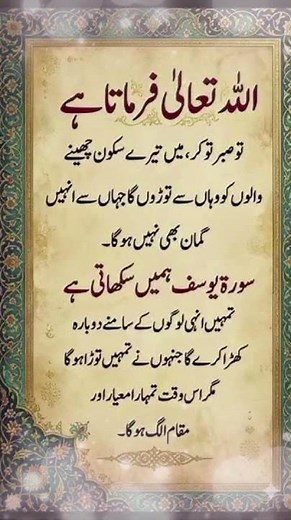 اللہ تعالیٰ فرماتا ہے
تو صبر تو کر، میں تیرے سکون چھیننے
والوں کو وہاں سے توڑوں گا جہاں سے انہیں
گمان بھی نہیں ہوگا۔
سورۃ یوسف ہمیں سکھاتی ہے
تمہیں انہی لوگوں کے سامنے دوبارہ
کھڑا کرے گا جنہوں نے تمہیں توڑا ہوگا
مگر اس وقت تمہارا معیار اور
مقام الگ ہوگا۔